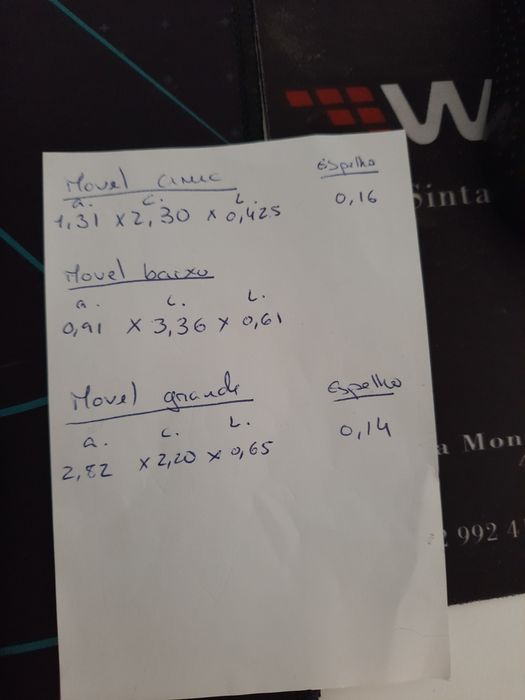 Movel cima
Espelho
a. C. L.
1,31 x 2,30 x 0,425
0,16
Movel baixo
a. C. L.
0,91 x 3,36 x 0,61
Movel grande
Espelho
a. C. L.
0,14
2,82 x 2,20 x 0,65
W
Sinta
a Mon
992 4